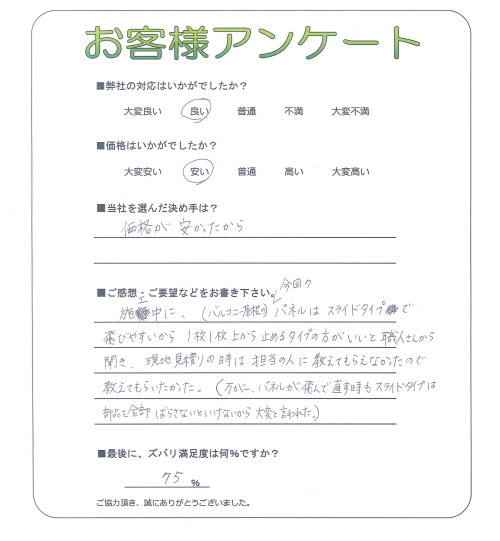 お客様アンケート
■弊社の対応はいかがでしたか？
大変良い 良い 普通 不満 大変不満
■価格はいかがでしたか？
大変安い 安い 普通 高い 大変高い
■当社を選んだ決め手は？
価格が安かったから
■ご感想・ご要望などをお書き下さい。
今回の
施工中に、(バルコニー屋根の) パネルは スライドタイプで
飛びやすいから 1枚1枚上から止めるタイプの方がいいと職人さんから
聞き、現地見積りの時は担当の人に教えてもらえなかったので
教えてもらいたかった。(万が一、パネルが飛んで直す時もスライドタイプは
部品を全部ばらさないといけないから大変と言われた。)
■最後に、ズバリ満足度は何%ですか？
75 %
ご協力頂き、誠にありがとうございました。